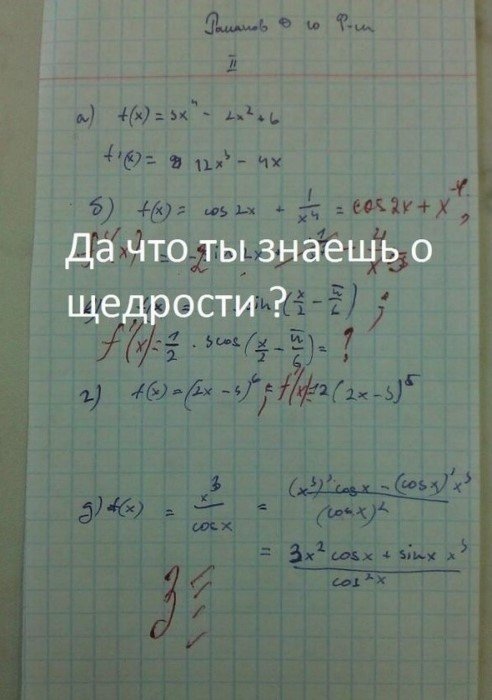 Романов 10 Ф-м
II
а) f(x) = 3x⁴ - 2x² + 6
f'(x) = 12x³ - 4x
б) f(x) = cos 2x + 1/x⁴ = cos 2x + x⁻⁴;
Да что ты знаешь о
щедрости ?
sin (x/2 - π/6) ;
f'(x) = 1/2 · 3cos (x/2 - π/6) = ?
г) f(x) = (2x - 3)⁶; f'(x) = 12(2x - 3)⁵
д) f(x) = x³/cosx = ((x³)' cosx - (cosx)' x³)/(cosx)²
= (3x² cosx + sinx x³)/cos²x
3